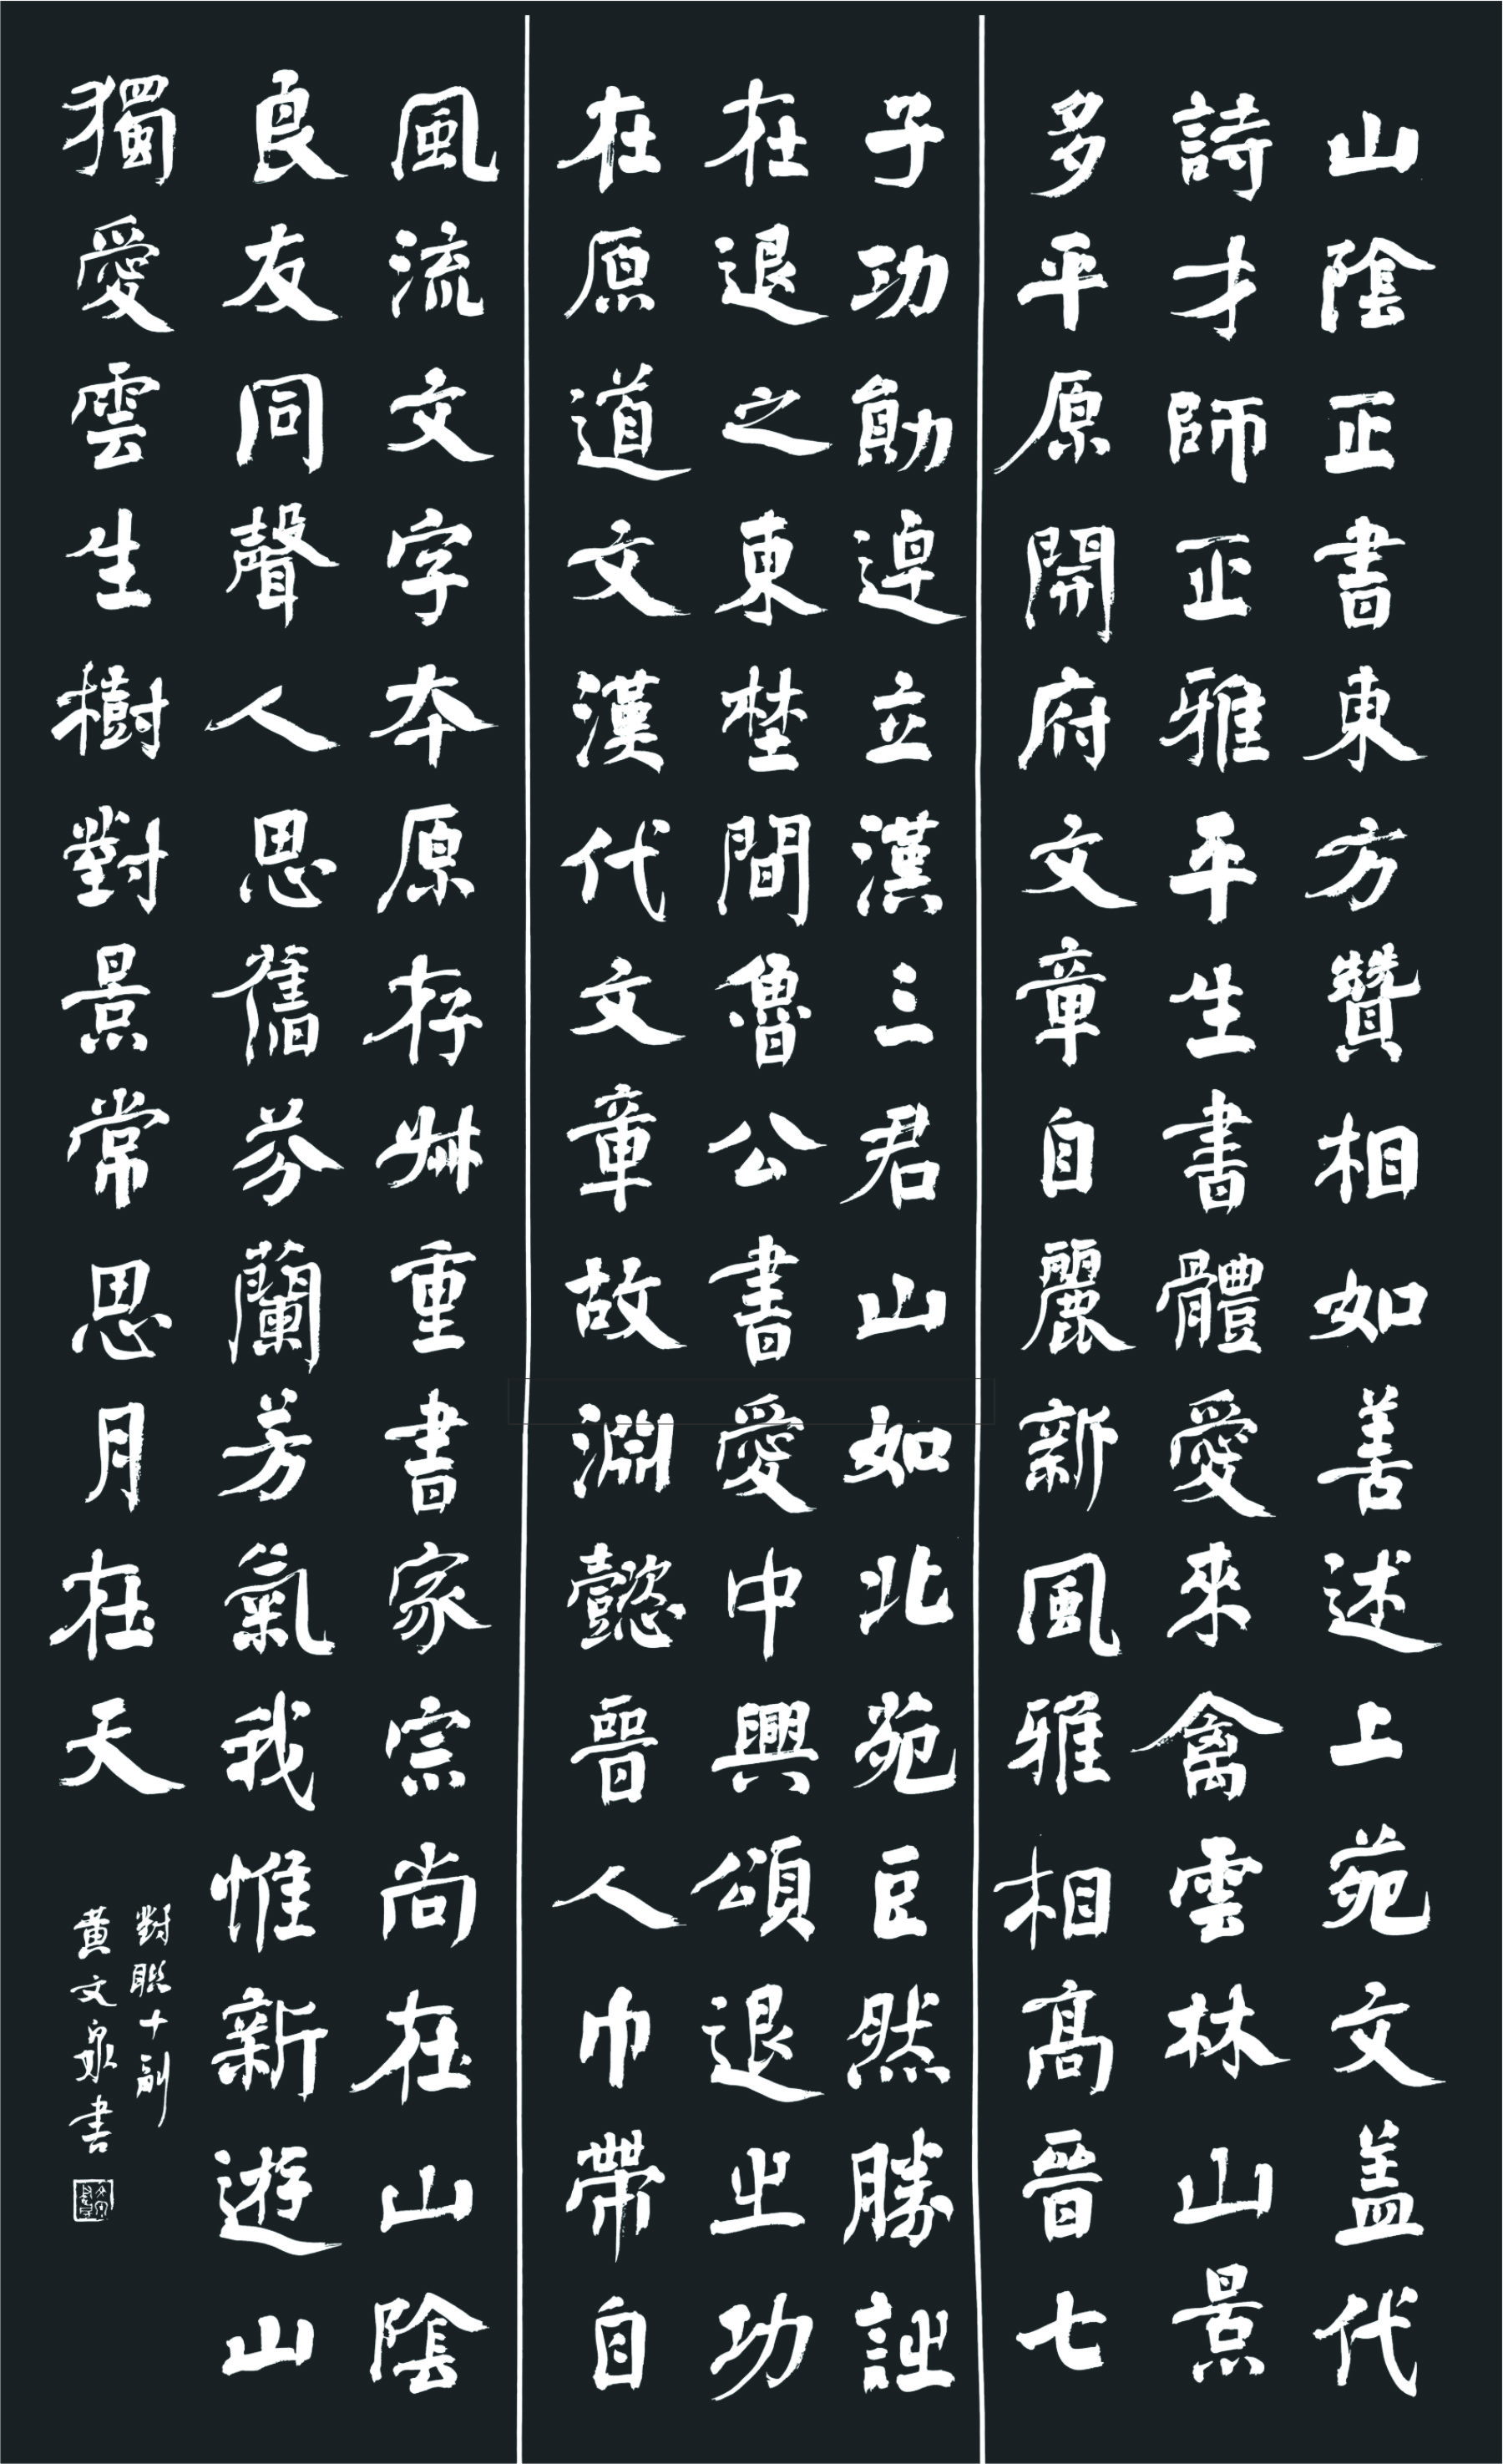 山陰正書東方贊相如善述上苑文盖代
詩才師正雅平生書體愛來禽雲林山景
多平原開府文章自麗新風雅相高晉七
子功勛逴立漢三君山如北苑巨然勝詩
在退之東埜間魯公書愛中興頌退之功
在原道文漢代文章故淵懿晉人巾帶自
風流文字本原存艸重書家宗尚在山陰
良友同聲人思舊芬蘭芳氣我惟新遊山
獨愛雲生樹對景常思月在天
對聯十副
黄文泉書